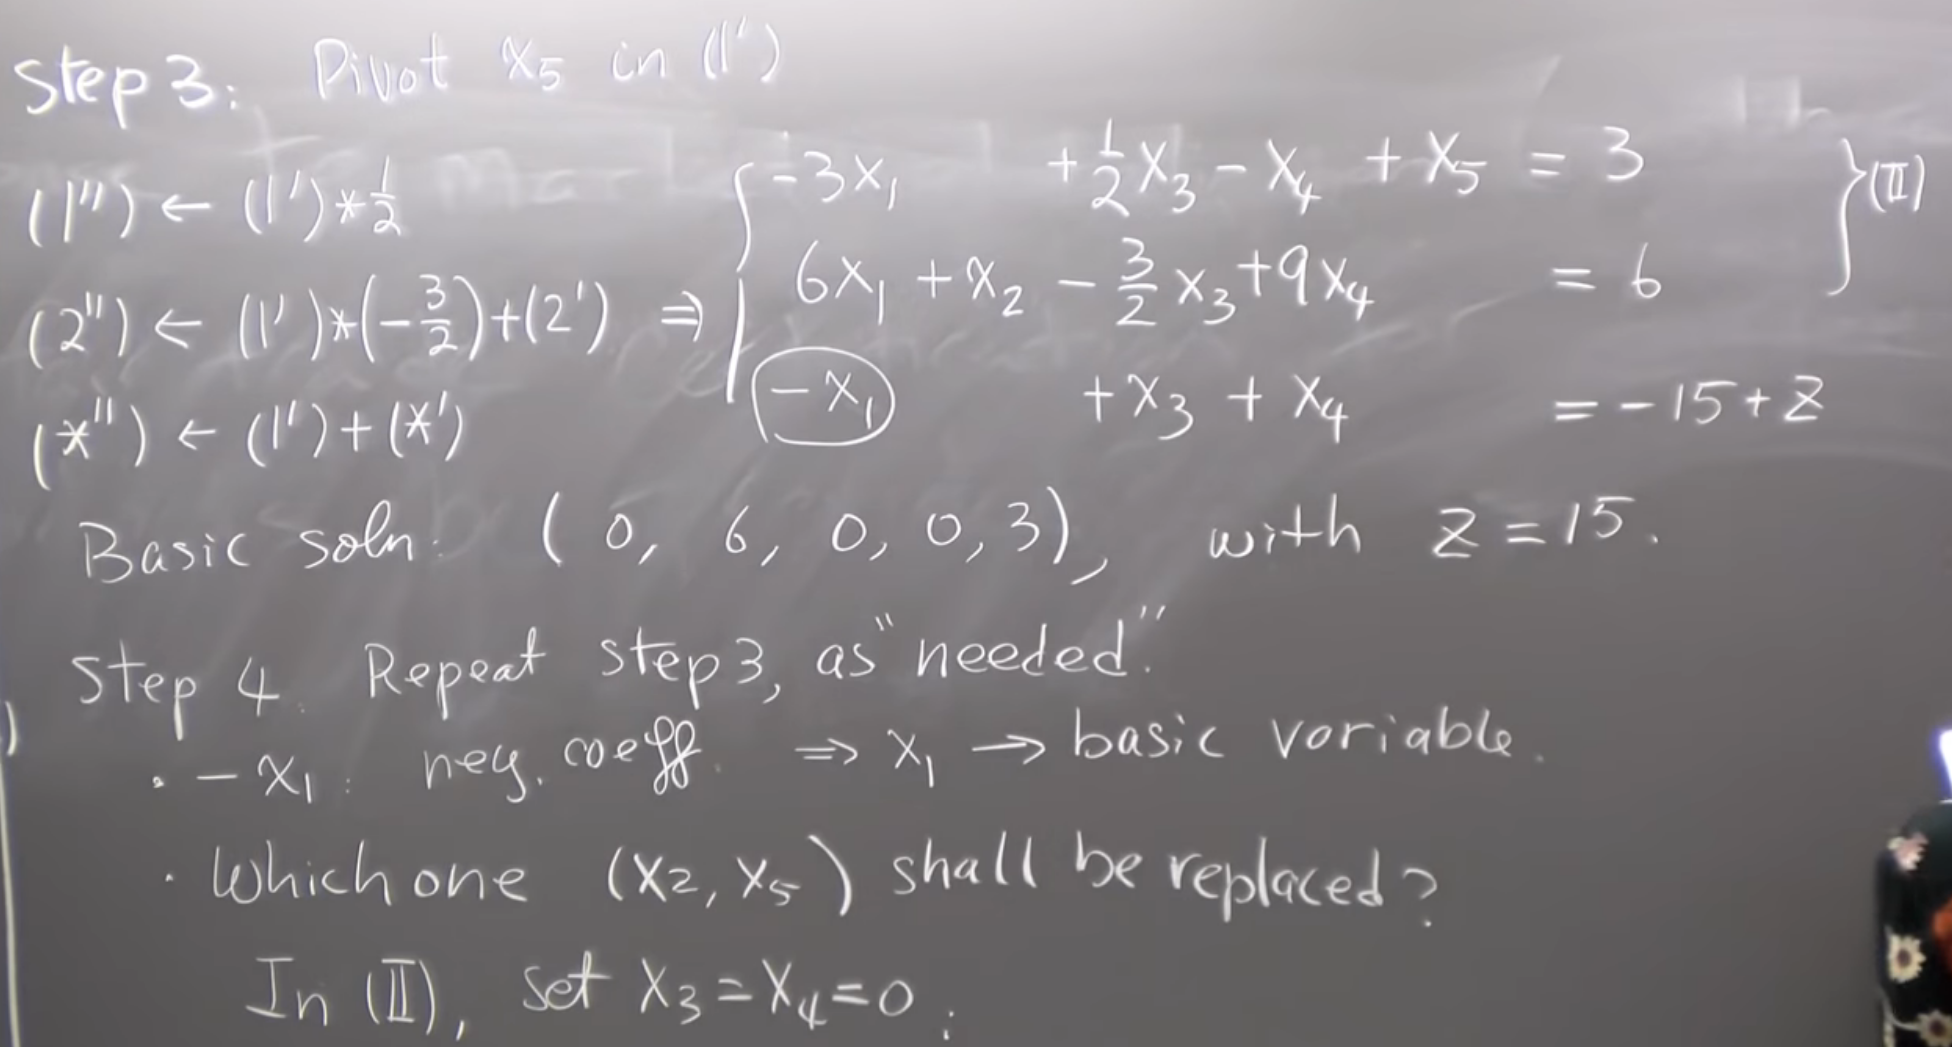 Step 3: Pivot x₅ in (1′)
(1″) ← (1′)*½ { -3x₁ + ½x₃ - x₄ + x₅ = 3 } (II)
(2″) ← (1′)*(-3/2)+(2′) ⇒ 6x₁ + x₂ - 3/2 x₃ + 9x₄ = 6
(*″) ← (1′)+(*′) -x₁ + x₃ + x₄ = -15+z
Basic soln: (0, 6, 0, 0, 3), with z = 15.
Step 4. Repeat step 3, as "needed".
· -x₁ : neg. coeff. ⇒ x₁ → basic variable.
· Which one (x₂, x₅) shall be replaced?
In (II), set x₃ = x₄ = 0 :